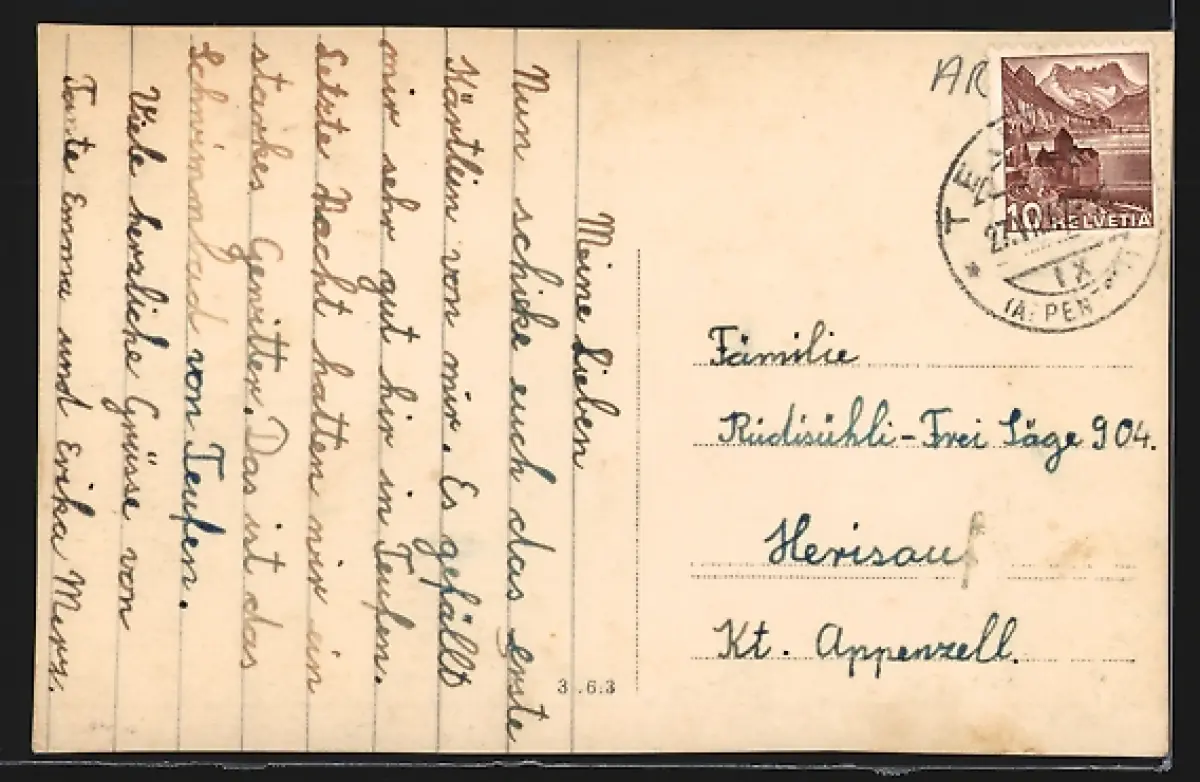 Meine Lieben
Nun schicke euch das erste
Kärtlein von mir. Es gefällt
mir sehr gut hir in Teufen.
Letzte Nacht hatten wir ein
starkes Gewitter. Das ist das
Schwimmbad von Teufen.
Viele herzliche Grüsse von
Tante Emma und Erika Merz.
3.6.3
AR
10 HELVETIA
TEUFEN
27.
IX
(APPENZELL)
Familie
Rüdisühli-Frei Säge 904.
Herisau
Kt. Appenzell.